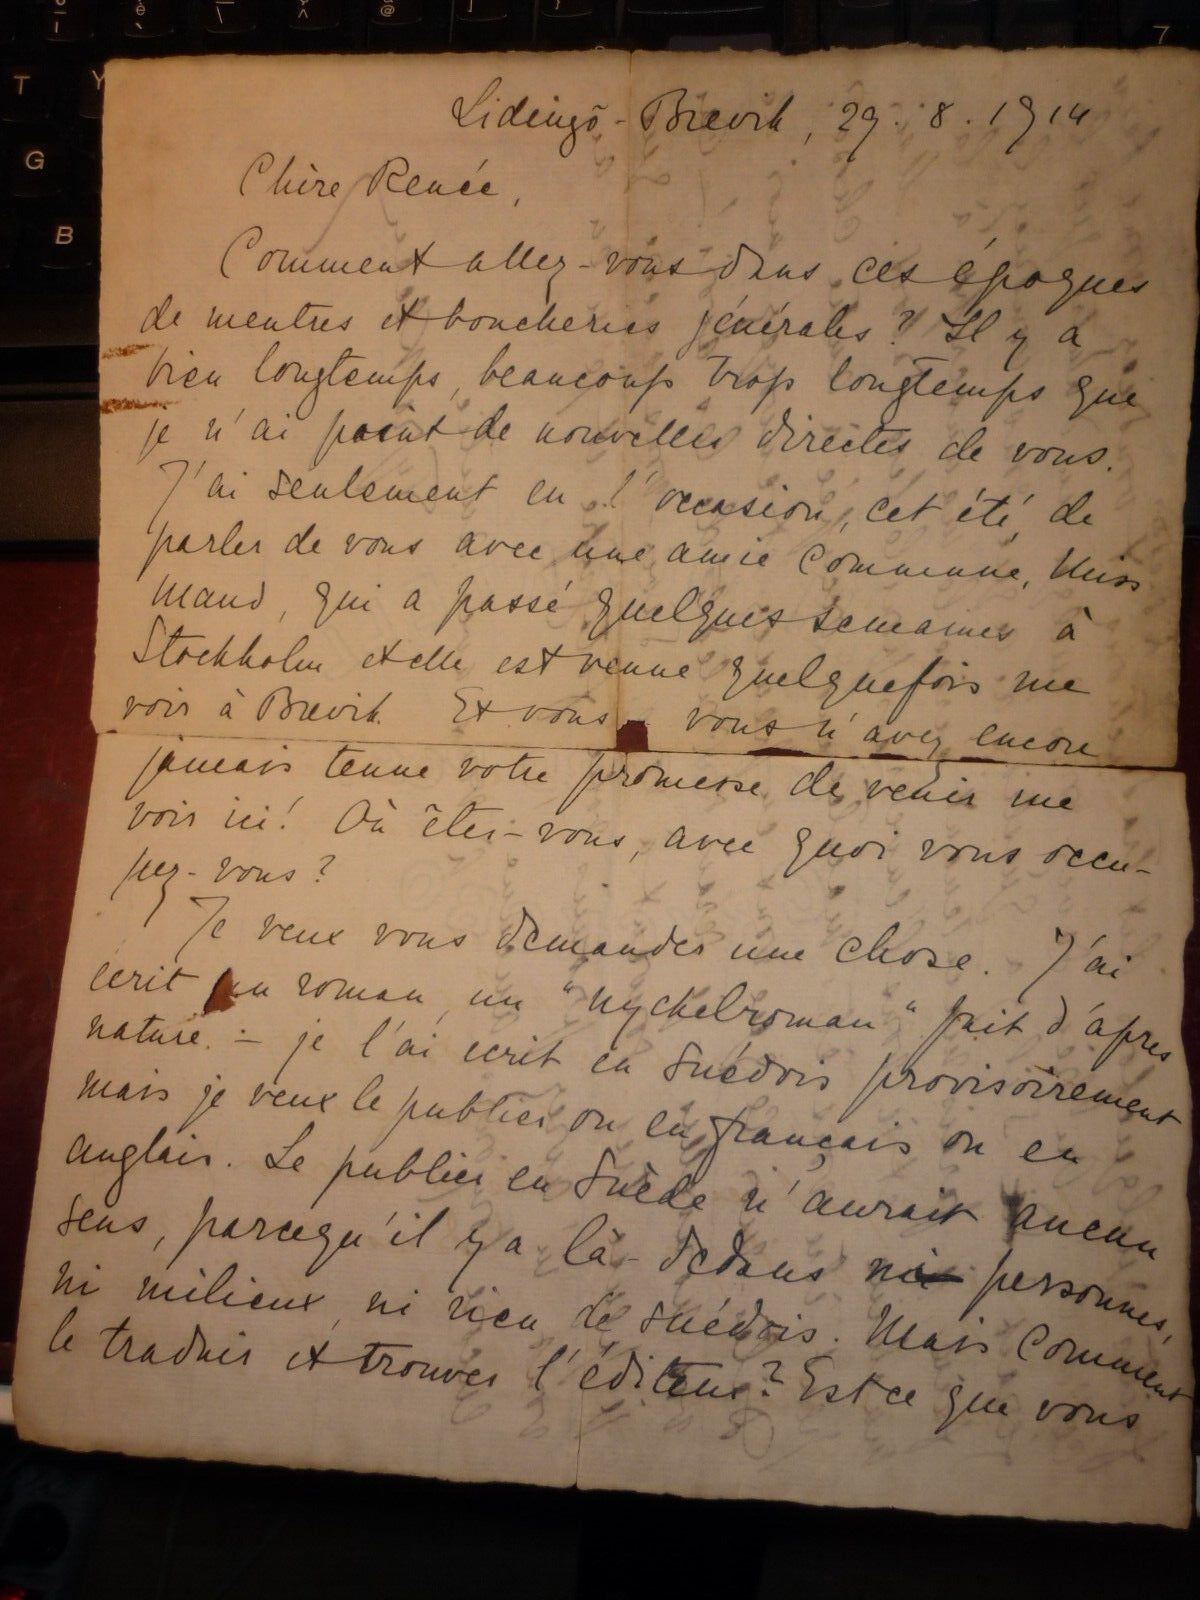 Lidingö-Brevik, 29.8.1914
Chère Renée,
Comment allez-vous dans ces époques
de meutres et boucheries générales? Il y a
bien longtemps, beaucoup trop longtemps que
je n'ai point de nouvelles directes de vous.
J'ai seulement eu l'occasion, cet été, de
parler de vous avec une amie commune, Miss
Maud, qui a passé quelques semaines à
Stockholm et elle est venue quelquefois me
voir à Brevik. Et vous vous n'avez encore
jamais tenue votre promesse de venir me
voir ici! Où êtes-vous, avec quoi vous occu-
pez-vous?
Je veux vous demander une chose. J'ai
écrit un roman, un "nyckelroman" fait d'après
nature. - je l'ai écrit en suédois provisoirement
mais je veux le publier ou en français ou en
anglais. Le publier en Suède n'aurait aucun
sens, parcequ'il y a là-dedans ni personnes,
ni milieux, ni rien de suédois. Mais comment
le traduir et trouver l'éditeur? Est ce que vous
T
Y
G
B
7
@